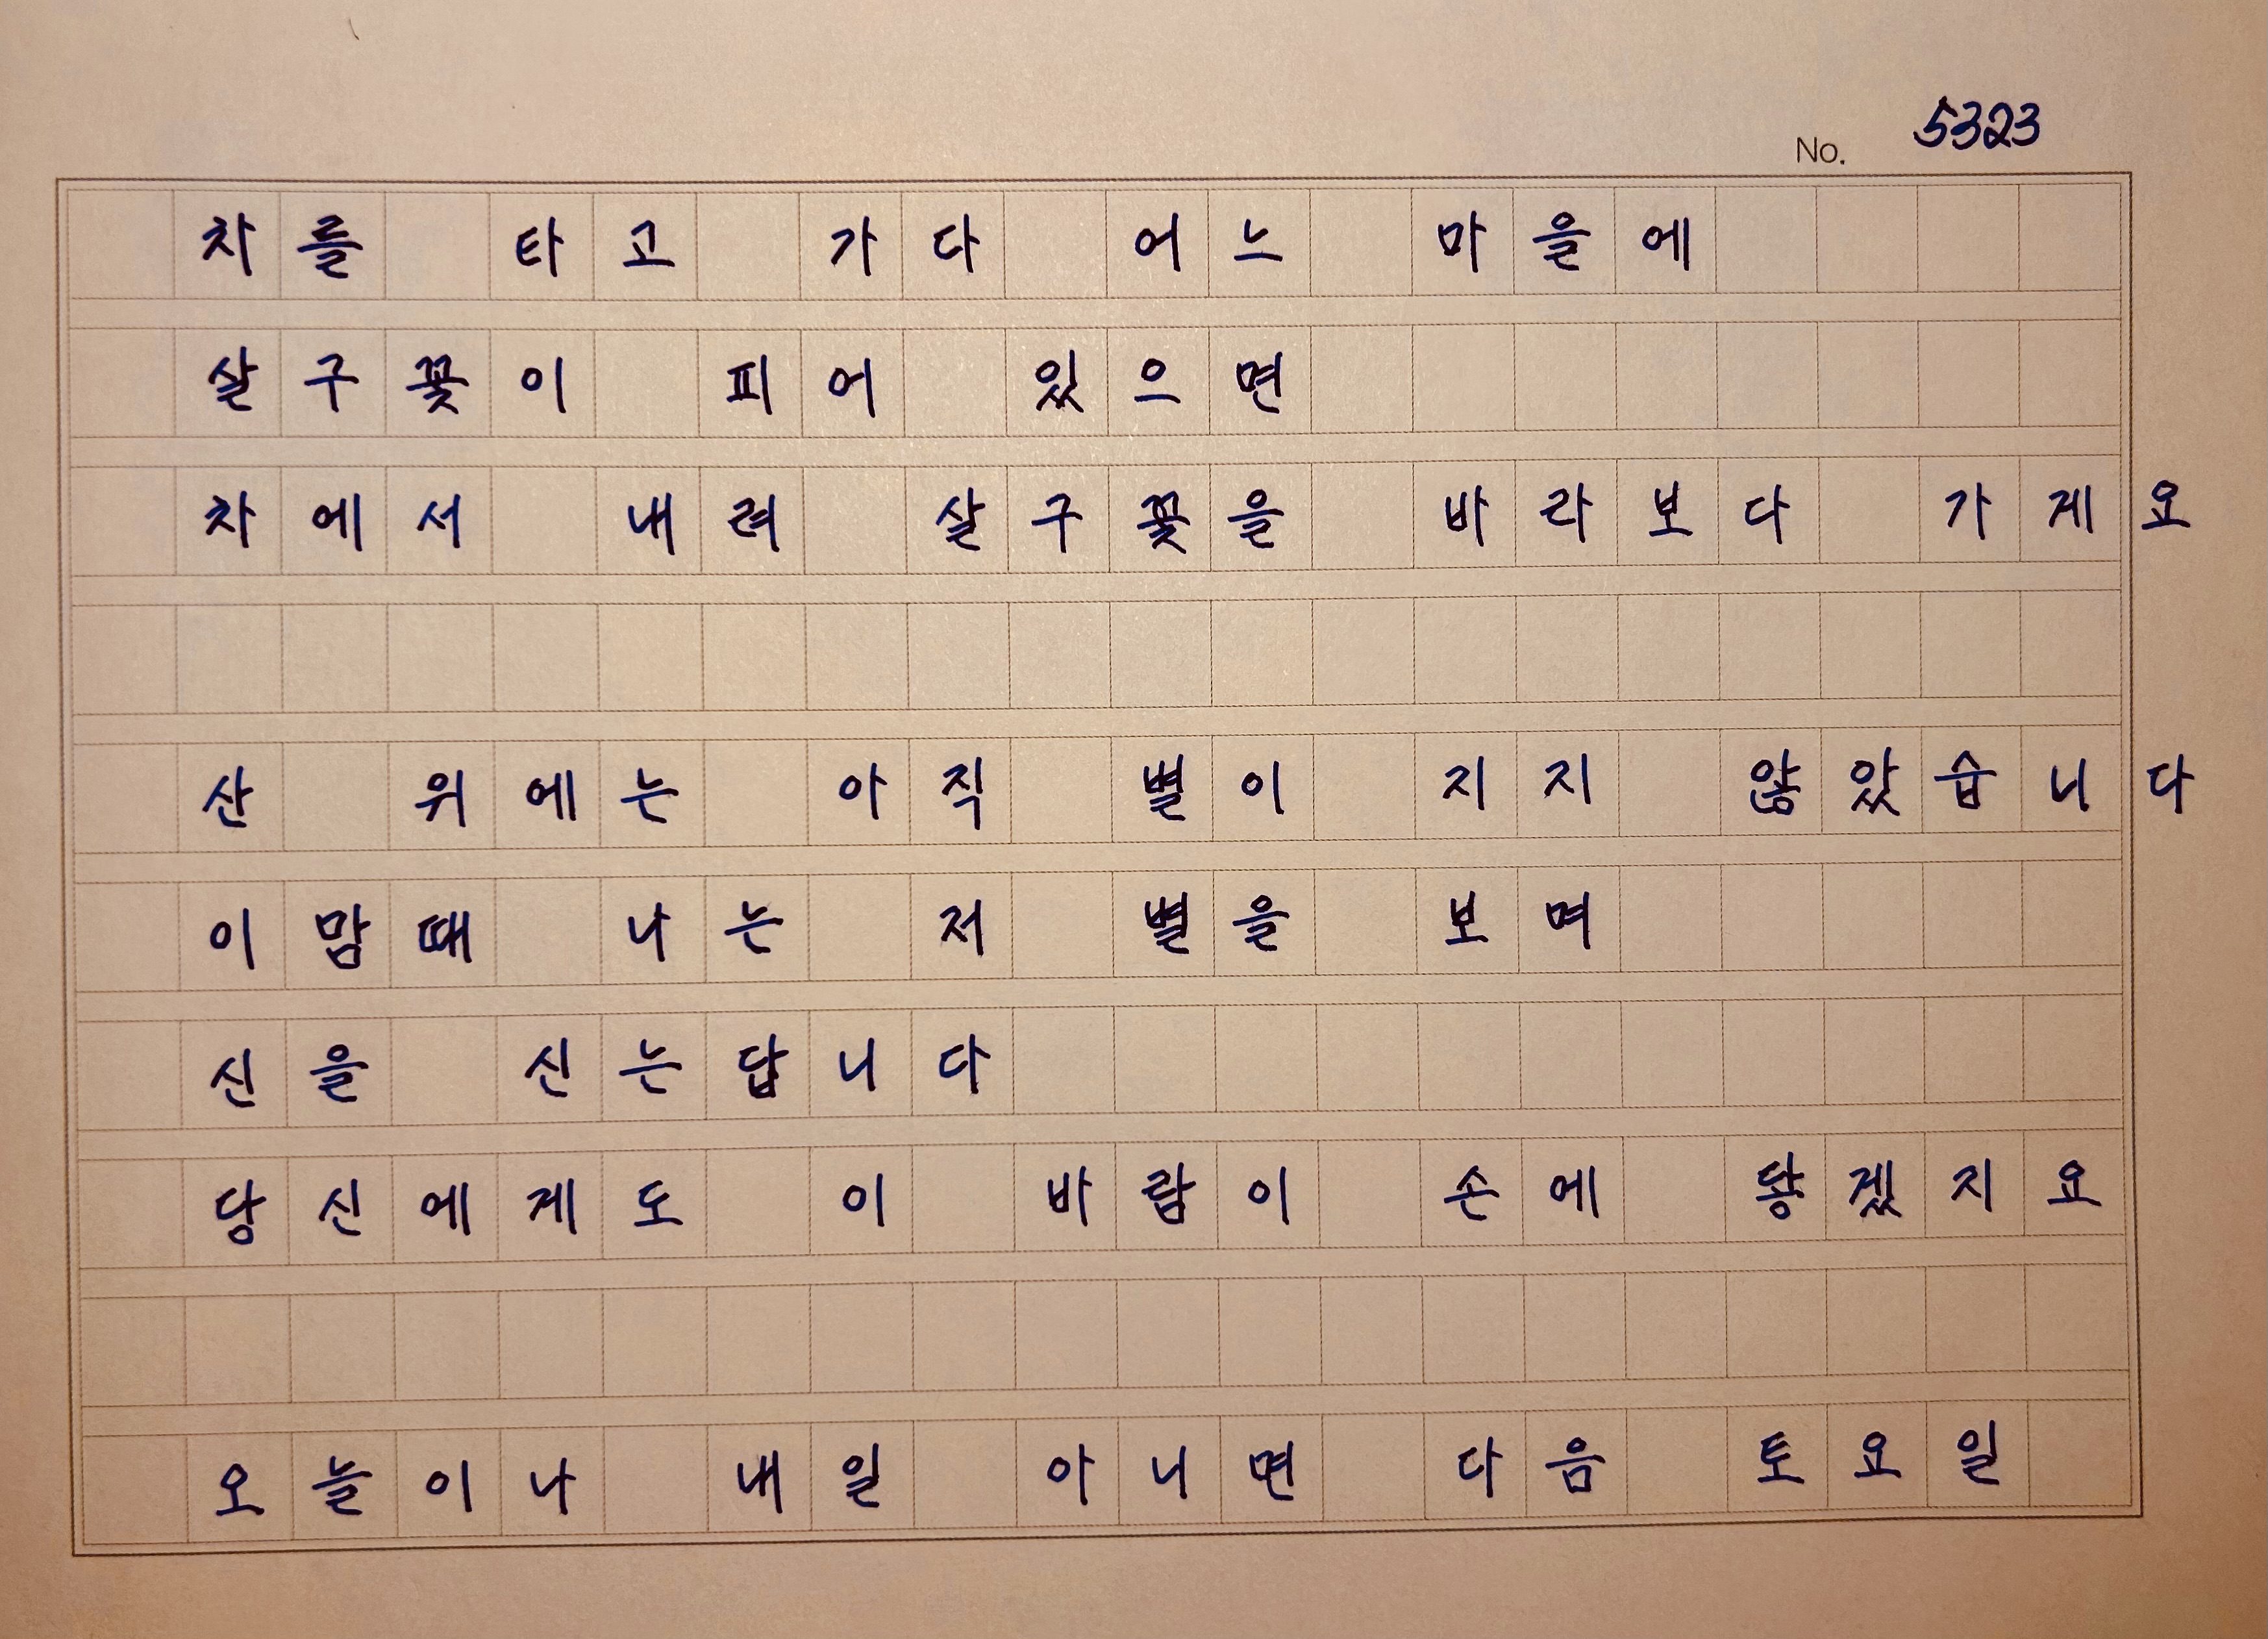 No. 5323
차를 타고 가다 어느 마을에
살구꽃이 피어 있으면
차에서 내려 살구꽃을 바라보다 가게요
산 위에는 아직 별이 지지 않았습니다
이맘때 나는 저 별을 보며
신을 신는답니다
당신에게도 이 바람이 손에 닿겠지요
오늘이나 내일 아니면 다음 토요일